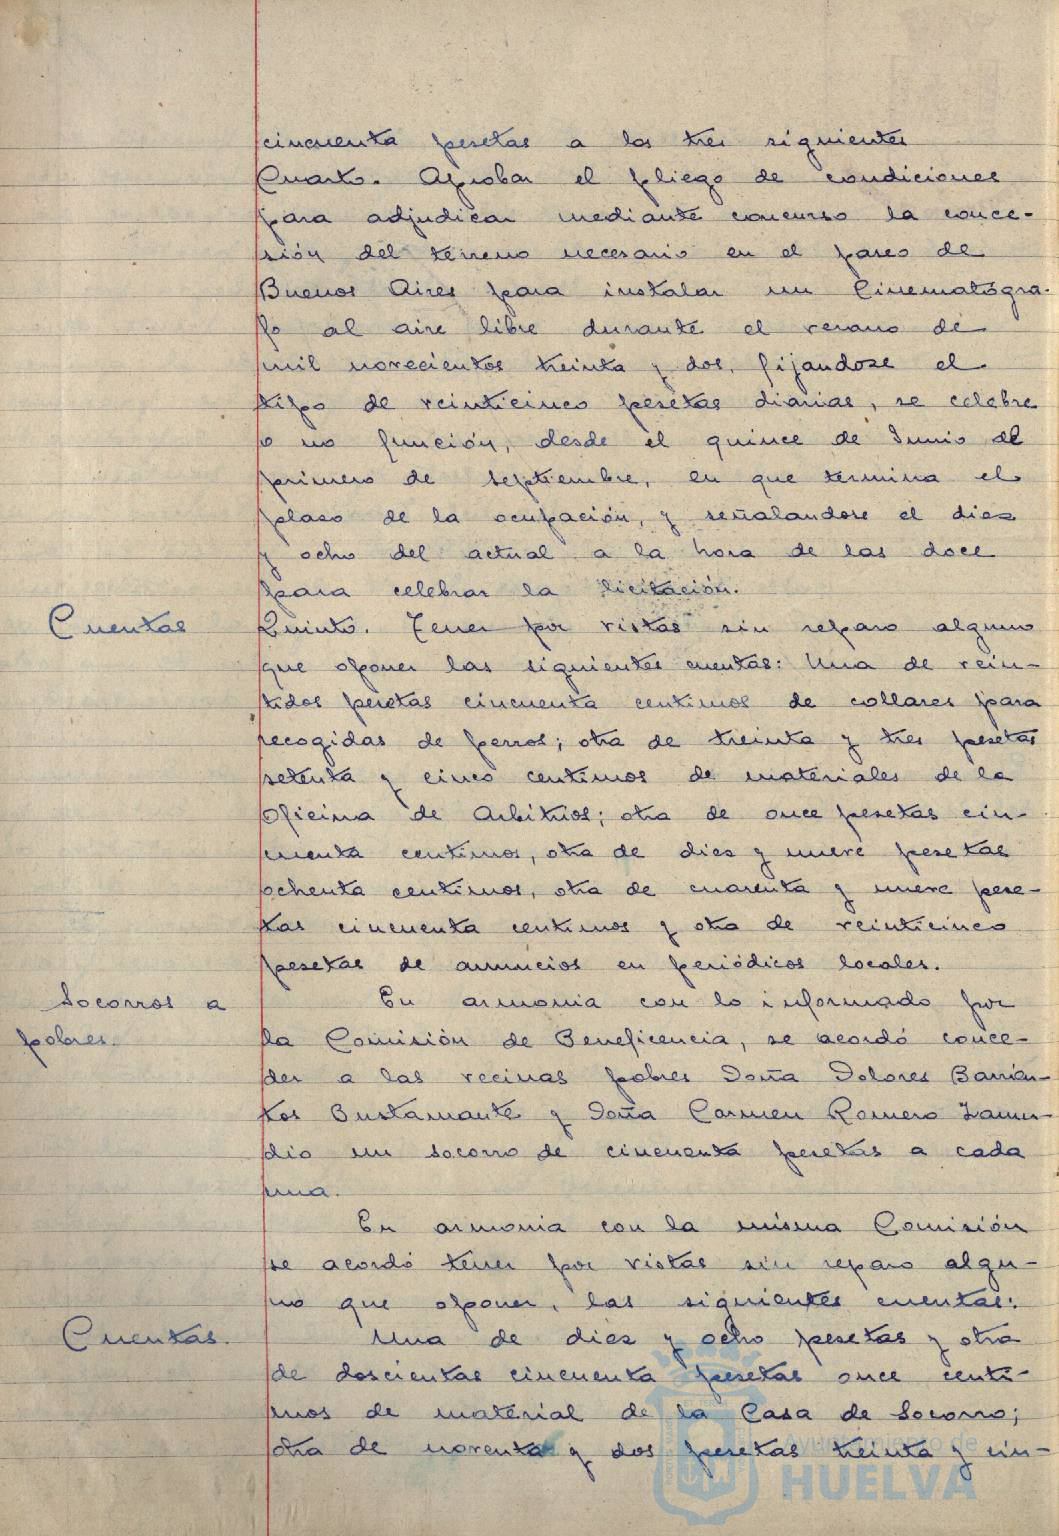 cincuenta pesetas a los tres siguientes
Cuarto. Aprobar el pliego de condiciones
para adjudicar mediante concurso la conce-
sión del terreno necesario en el paseo de
Buenos Aires para instalar un Cinematógra-
fo al aire libre durante el verano de
mil novecientos treinta y dos, fijandose el
tipo de veinticinco pesetas diarias, se celebre
o no función, desde el quince de Junio al
primero de septiembre, en que termina el
plaso de la ocupación, y señalandose el dies
y ocho del actual a la hora de las doce
para celebrar la licitación.
Cuentas
Quinto. Tener por vistas sin reparo alguno
que oponer las siguientes cuentas: Una de vein-
tidos pesetas cincuenta centimos de collares para
recogidas de perros; otra de treinta y tres pesetas
setenta y cinco centimos de materiales de la
Oficina de Arbitrios; otra de once pesetas cin-
cuenta centimos, otra de dies y nueve pesetas
ochenta centimos, otra de cuarenta y nueve pese-
tas cincuenta centimos y otra de veinticinco
pesetas de anuncios en periódicos locales.
Socorros a
pobres.
En armonia con lo informado por
la Comisión de Beneficencia, se acordó conce-
der a las vecinas pobres Doña Dolores Barrien-
tos Bustamante y Doña Carmen Romero Zamu-
dio un socorro de cincuenta pesetas a cada
una.
En armonia con la misma Comisión
se acordó tener por vistas sin reparo algu-
no que oponer, las siguientes cuentas:
Cuentas.
Una de dies y ocho pesetas y otra
de doscientas cincuenta pesetas once centi-
mos de material de la Casa de Socorro;
otra de noventa y dos pesetas treinta y cin-
Ayuntamiento de
HUELVA